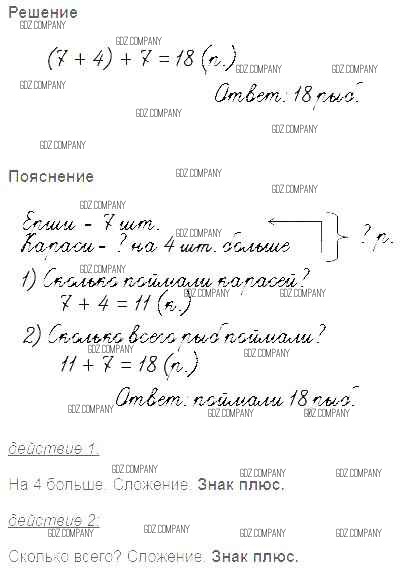 Решение
(7 + 4) + 7 = 18 (р.)
Ответ: 18 рыб.
Пояснение
Ерши - 7 шт.
Караси - ? на 4 шт. больше
? р.
1) Сколько поймали карасей?
7 + 4 = 11 (к.)
2) Сколько всего рыб поймали?
11 + 7 = 18 (р.)
Ответ: поймали 18 рыб.
действие 1:
На 4 больше. Сложение. Знак плюс.
действие 2:
Сколько всего? Сложение. Знак плюс.
GDZ.COMPANY